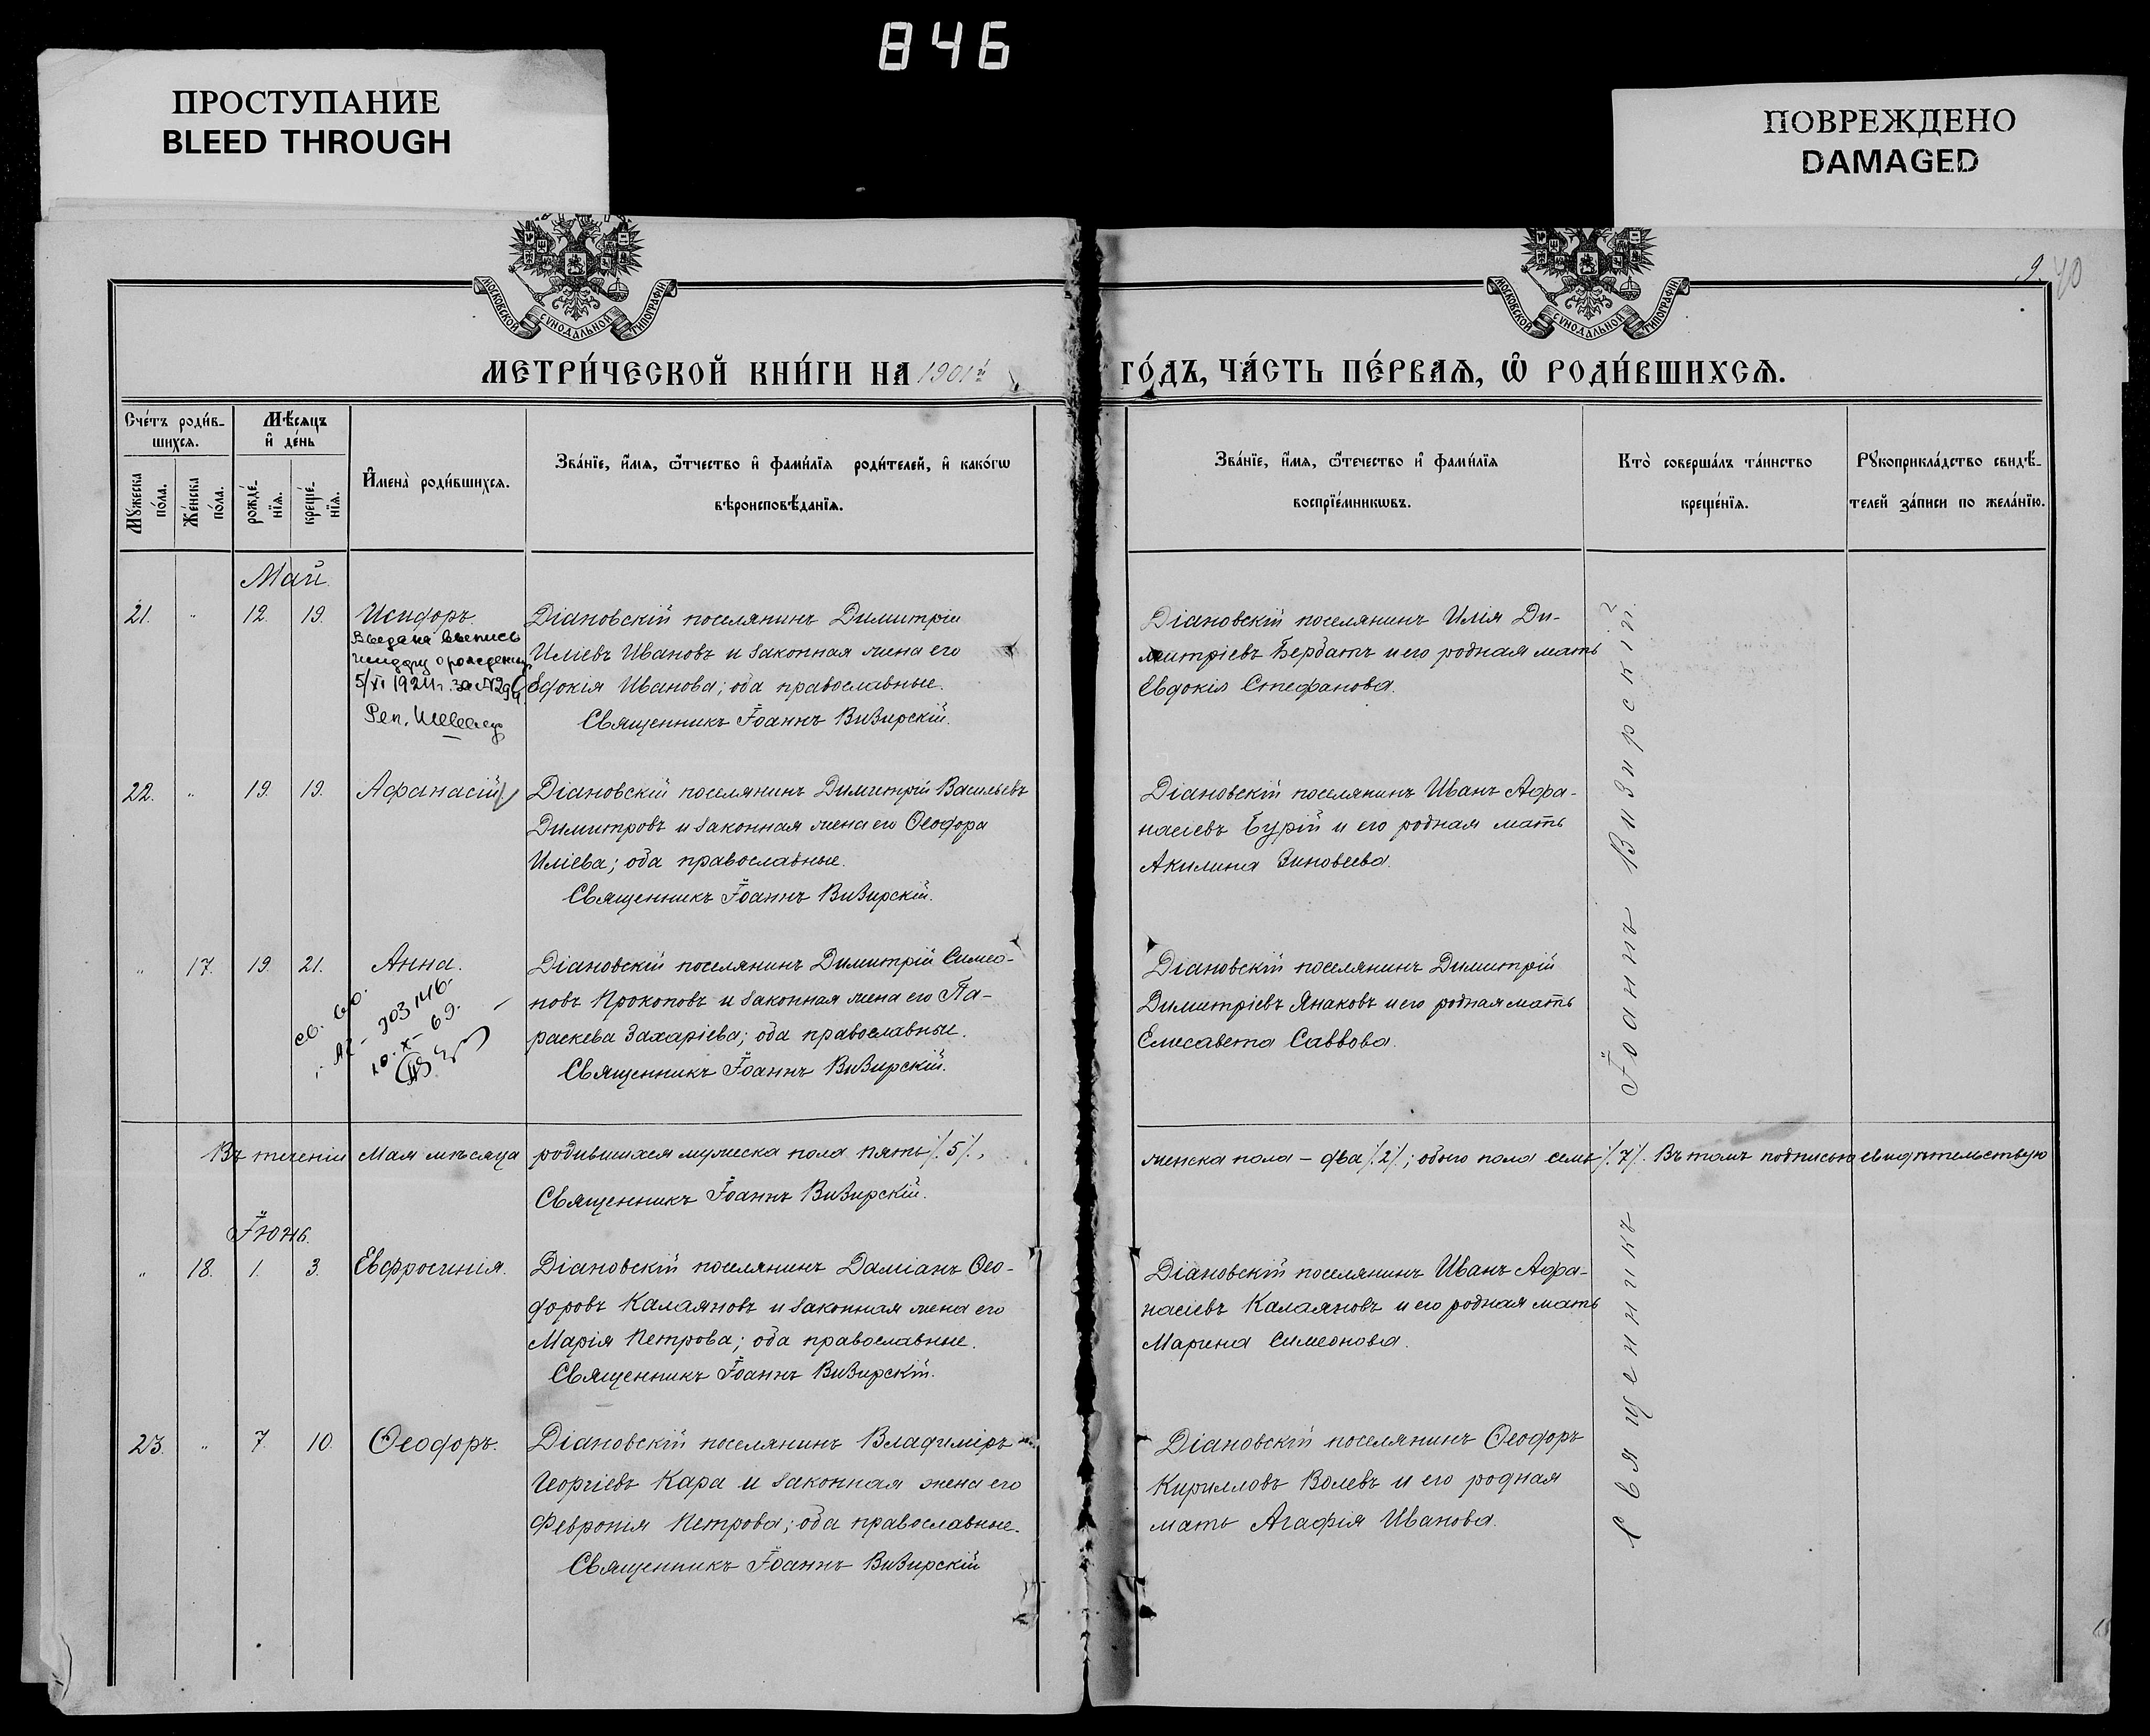 846
ПРОСТУПАНИЕ
BLEED THROUGH
ПОВРЕЖДЕНО
DAMAGED
МОСКОВСКОЙ СѴНОДАЛЬНОЙ ТИПОГРАФІИ
МОСКОВСКОЙ СѴНОДАЛЬНОЙ ТИПОГРАФІИ
9.
40
МЕТРИ́ЧЕСКОЙ КНИ́ГИ НА 1901й
ГО́ДЪ, ЧА́СТЬ ПЕ́РВАѦ, Ѡ҆ РОДИ́ВШИХСѦ.
Сче́тъ роди́в-
шихсѧ.
Мꙋжеска по́ла.
Же́нска по́ла.
Мѣ́сѧцъ
и҆ де́нь
рожде́-
нїѧ.
креще́-
нїѧ.
И҆мена̀ роди́вшихсѧ.
Зва́нїе, и҆́мѧ, ѻ҆́тчество и҆ фами́лїѧ роди́телей, и҆ како́гѡ
вѣроисповѣ́данїѧ.
Зва́нїе, и҆́мѧ, ѻ҆́течество и҆ фами́лїѧ
воспрїе́мникѡвъ.
Кто̀ соверша́лъ та́инство
креще́нїѧ.
Рꙋкоприкла́дство свидѣ́-
телей за́писи по жела́нїю.
Май.
21. " 12. 19. Исидоръ.
Выдана выпись
Исидору о рождении
5/XI 1924г. за №
Діановскій поселянинъ Димитрій
Иліевъ Ивановъ и законная жена его
Евдокія Иванова; оба православные.
Священникъ Іоаннъ Визирскій.
Діановскій поселянинъ Илія Ди-
митріевъ Бербатъ и его родная мать
Евдокія Стефанова.
22. " 19. 19. Афанасій
Діановскій поселянинъ Димитрій Васильевъ
Димитровъ и законная жена его Ѳеодора
Иліева; оба православные.
Священникъ Іоаннъ Визирскій.
Діановскій поселянинъ Иванъ Афа-
насіевъ Бурій и его родная мать
Акилина Зиновеева.
" 17. 19. 21. Анна.
10.X-69.
Діановскій поселянинъ Димитрій Симео-
новъ Прокоповъ и законная жена его Па-
раскева Захаріева; оба православные.
Священникъ Іоаннъ Визирскій.
Діановскій поселянинъ Димитрій
Димитріевъ Янаковъ и его родная мать
Елисавета Саввова.
Въ теченіи Мая мѣсяца родившихся мужеска пола пять /.5/.,
женска пола – два /.2/.; обоего пола семь /.7/. Въ томъ подписью свидѣтельствую
Священникъ Іоаннъ Визирскій.
Іюнь.
" 18. 1. 3. Евфросинія.
Діановскій поселянинъ Даміанъ Ѳео-
доровъ Калаяновъ и законная жена его
Марія Петрова; оба православные.
Священникъ Іоаннъ Визирскій.
Діановскій поселянинъ Иванъ Афа-
насіевъ Калаяновъ и его родная мать
Марина Симеонова.
23. " 7. 10. Ѳеодоръ.
Діановскій поселянинъ Владиміръ
Георгіевъ Кара и законная жена его
Февронія Петрова; оба православные.
Священникъ Іоаннъ Визирскій
Діановскій поселянинъ Ѳеодоръ
Кирилловъ Волевъ и его родная
мать Агафія Иванова.
Священникъ Іоаннъ Визирскій.